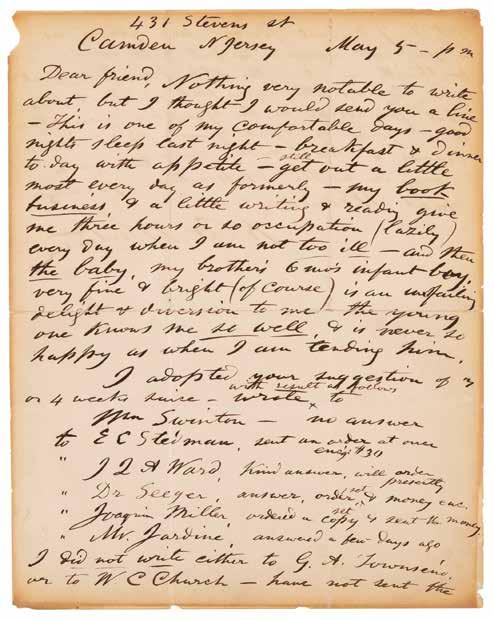 431 Stevens st
Camden N Jersey May 5 - p m
Dear friend, Nothing very notable to write
about, but I thought I would send you a line
- This is one of my comfortable days - good
nights sleep last night - breakfast & dinner
to day with appetite - still get out a little
most every day as formerly - my book
business & a little writing & reading give
me three hours or so occupation (lazily)
every day when I am not too ill - and then
the baby, my brother's 6 mo's infant boy,
very fine & bright (of course) is an unfailing
delight & diversion to me the young
one knows me so well, & is never so
happy as when I am tending him.
I adopted your suggestion of 3
or 4 weeks since - wrote, with result as follows to
Wm Swinton - no answer
to E C Stedman, sent an order at once
enc'g $30
" J Q A Ward, kind answer, will order
presently
" Dr Seeger, answer, order, set & money enc.
" Joaquin Miller, ordered a set copy & sent the money
" Mr. Jardine, answered a few days ago
I did not write either to G. A. Townsend,
or to W C Church - have not sent the